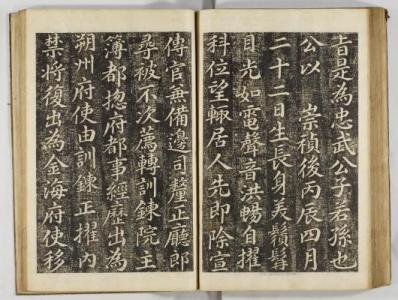 皆是為忠武公子若孫也
公以　崇禎後丙辰四月
二十二日生長身美鬚髯
目光如電聲音洪暢自擢
科位望輒居人先即除宣
傳官無備邊司釐正廳郎
尋被不次薦轉訓鍊院主
簿都揔府都事經歷出為
朔州府使由訓鍊正擢內
禁將復出為金海府使移